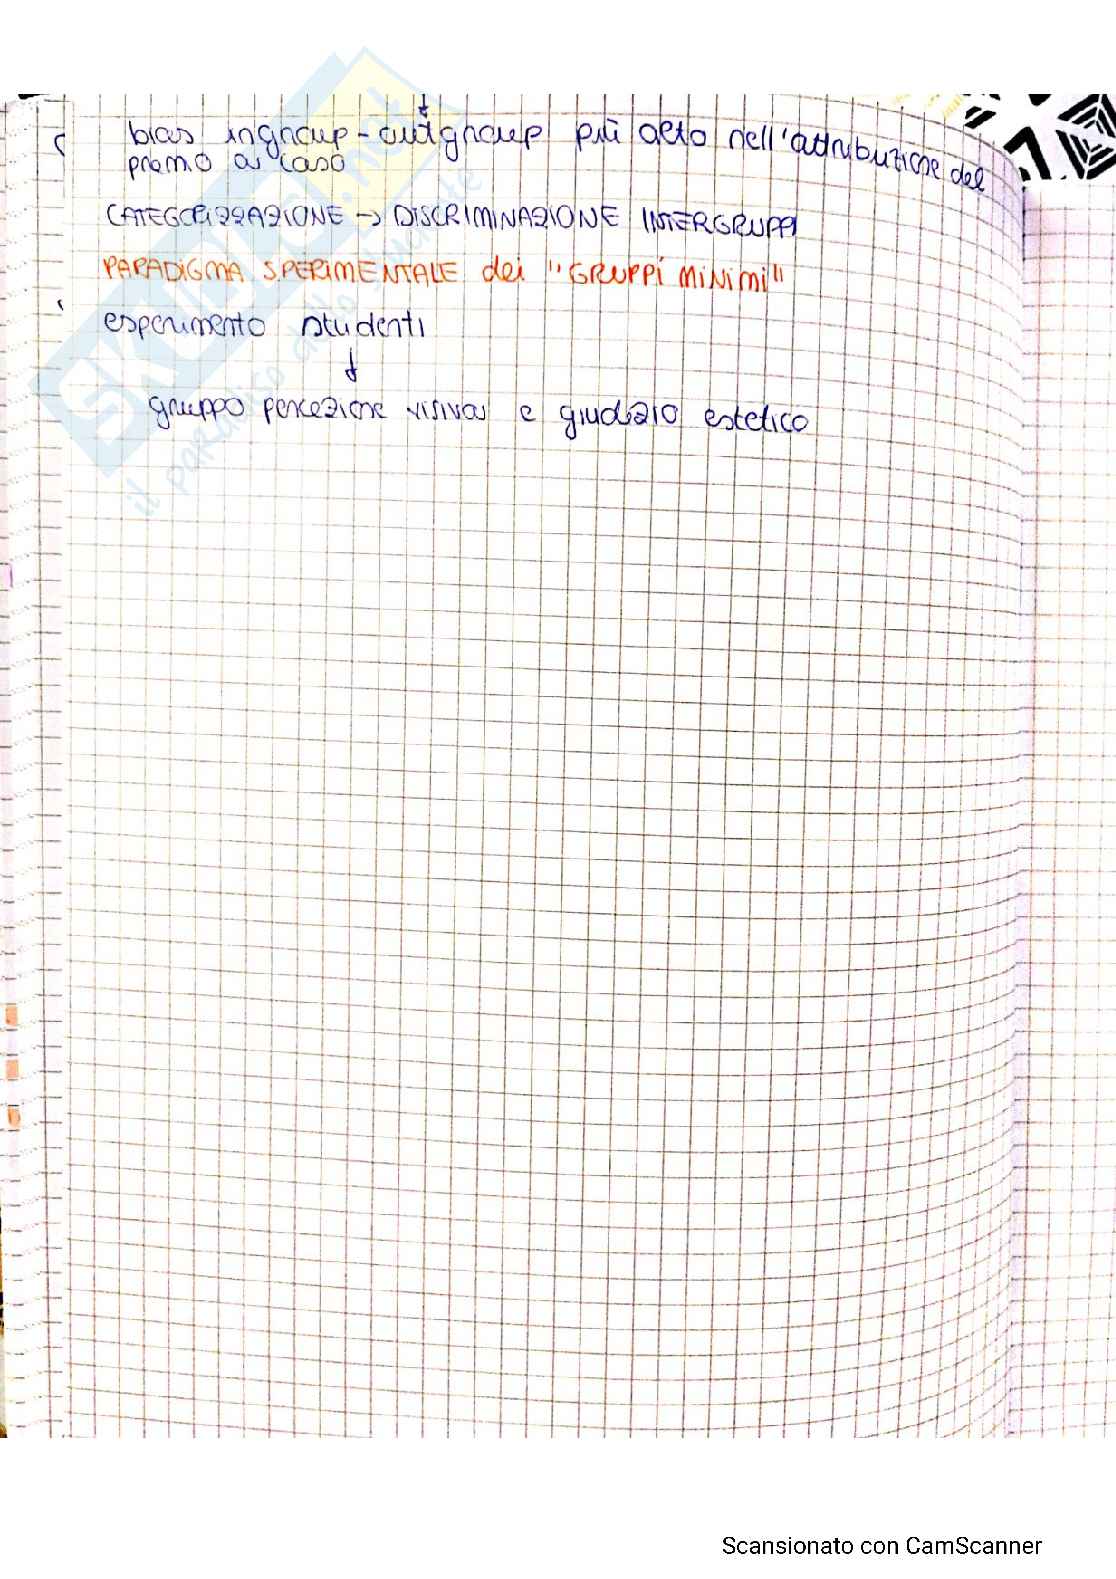 bias ingroup-outgroup più alto nell'attribuzione del
premio a caso
CATEGORIZZAZIONE → DISCRIMINAZIONE INTERGRUPPI
PARADIGMA SPERIMENTALE dei "GRUPPI MINIMI"
esperimento studenti
gruppo percezione visiva e giudizio estetico
SKUOLA.net
il paradiso dello studente
Scansionato con CamScanner